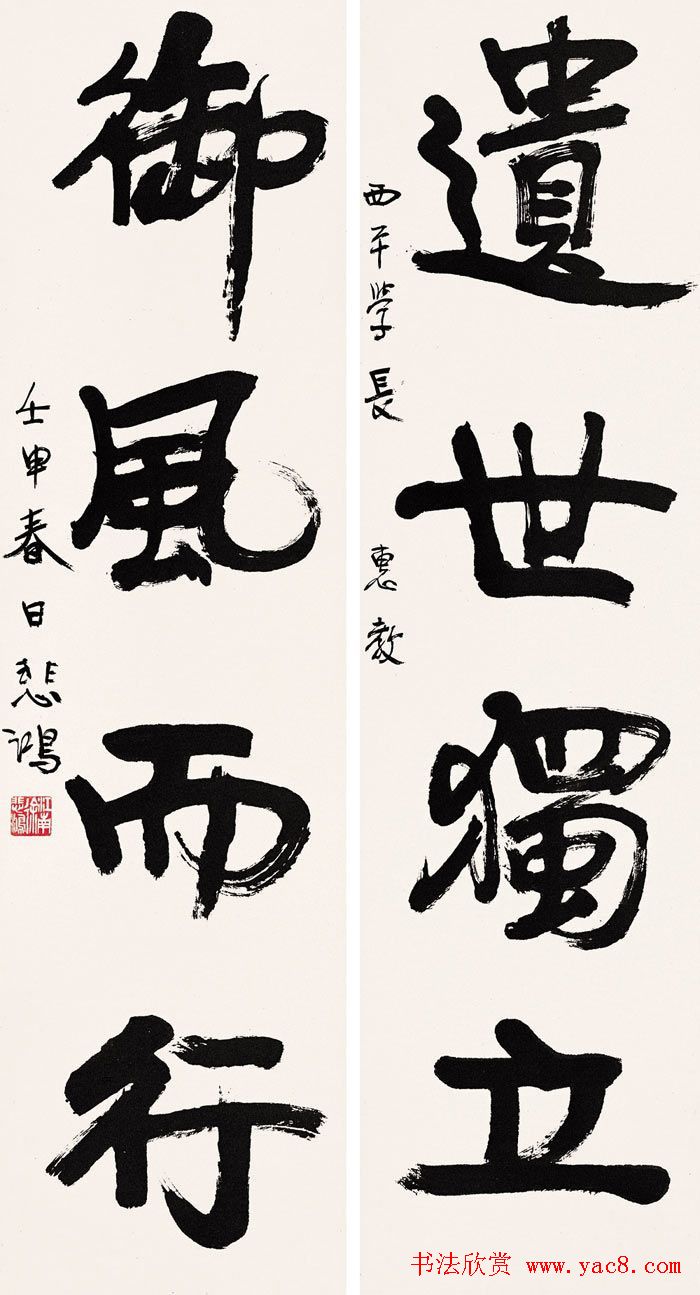 遺世獨立
西平学長 惠教
御風而行
壬申春日悲鴻
江南徐悲鴻
书法欣赏 www.yac8.com